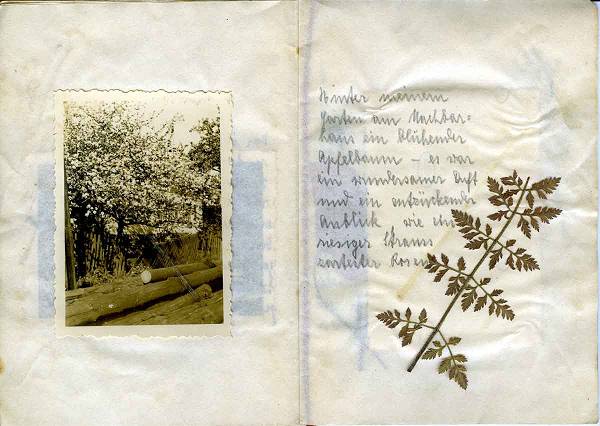 Hinter meinem
Garten am Nachbar-
haus ein blühender
Apfelbaum – es war
ein wundersamer Duft
und ein entzückender
Anblick wie ein
riesiger Strauss
zartester Rosen